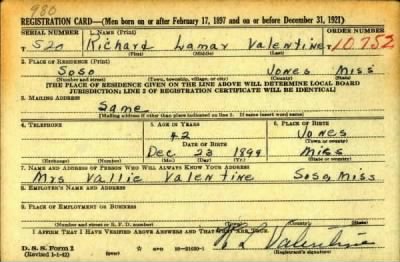 980
REGISTRATION CARD—(Men born on or after February 17, 1897 and on or before December 31, 1921)
SERIAL NUMBER 1. NAME (Print) ORDER NUMBER
T 520 Richard Lamar Valentine T 10752
(First) (Middle) (Last)
2. PLACE OF RESIDENCE (Print)
Soso Jones Miss
(Number and street) (Town, township, village, or city) (County) (State)
[THE PLACE OF RESIDENCE GIVEN ON THE LINE ABOVE WILL DETERMINE LOCAL BOARD
JURISDICTION; LINE 2 OF REGISTRATION CERTIFICATE WILL BE IDENTICAL]
3. MAILING ADDRESS
Same
[Mailing address if other than place indicated on line 2. If same insert word same]
4. TELEPHONE 5. AGE IN YEARS 6. PLACE OF BIRTH
42 Jones
DATE OF BIRTH (Town or county)
Dec 23 1899 Miss
(Exchange) (Number) (Mo.) (Day) (Yr.) (State or country)
7. NAME AND ADDRESS OF PERSON WHO WILL ALWAYS KNOW YOUR ADDRESS
Mrs Vallie Valentine Soso, Miss
8. EMPLOYER'S NAME AND ADDRESS
9. PLACE OF EMPLOYMENT OR BUSINESS
(Number and street or R. F. D. number) (Town) (County) (State)
I AFFIRM THAT I HAVE VERIFIED ABOVE ANSWERS AND THAT THEY ARE TRUE.
D. S. S. Form 1
(Revised 1-1-42) GPO 16-21630-1 R L Valentine
(Registrant's signature)